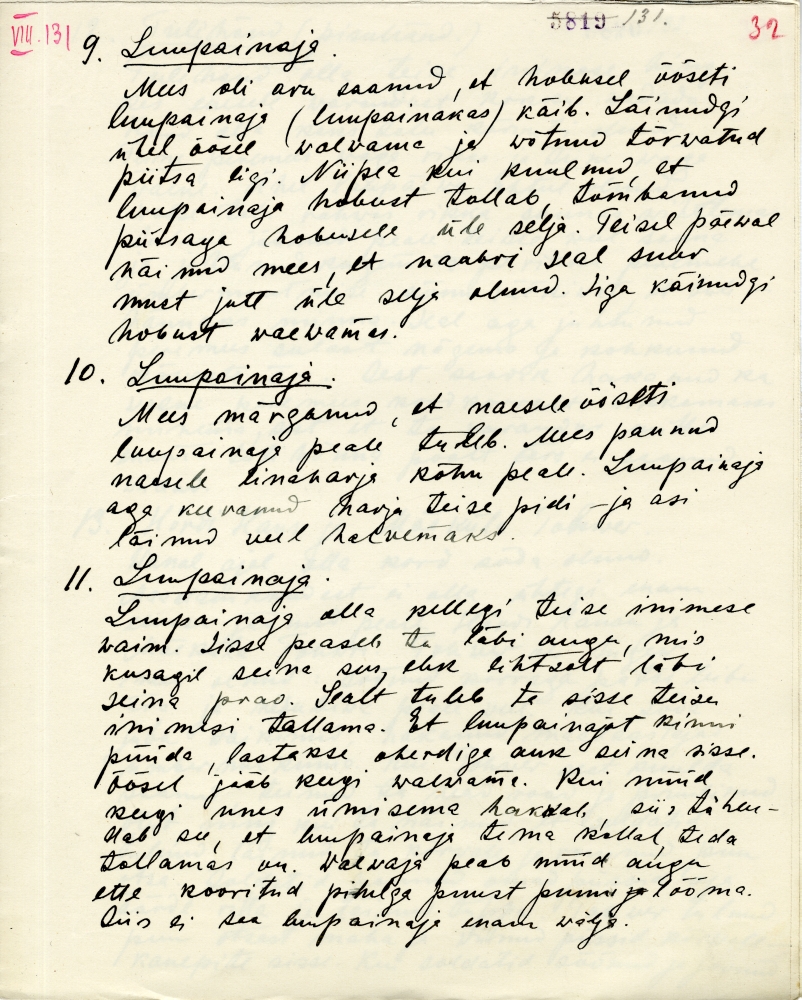 VIII.131
5819 131.
32
9. Luupainaja.
Mees oli aru saanud, et hobusel öösiti
luupainaja (luupainakas) käib. Läinudgi
ühel öösel walwama ja wõtnud tõrwatud
piitsa ligi. Niipea kui kuulnud, et
luupainaja hobust tallab, tõmbanud
piitsaga hobusele üle selja. Teisel päewal
näinud mees, et naabri seal suur
must jutt üle selja olnud. Siga käinudgi
hobust waewamas.
10. Luupainaja.
Mees märganud, et naesele öösiti
luupainaja peale tuleb. Mees pannud
naesele linaharja kõhu peale. Luupainaja
aga keeranud harja teise pidi – ja asi
läinud veel halvemaks.
11. Luupainaja.
Luupainaja olla kellegi teise inimese
waim. Sisse peaseb ta läbi augu, mis
kusagil seina sees, ehk lihtsalt läbi
seina prao. Sealt tuleb ta sisse teisi
inimesi tallama. Et luupainajat kinni
püüda, lastakse oherdiga auk seina sisse.
Öösel jääb keegi walwama. Kui nüüd
keegi unes ümisema hakkab, siis tähen-
dab see, et luupainaja tema kallal, teda
tallamas on. Walwaja peab nüüd augu
ette kooritud pihlga puust punni ja lööma.
Siis ei saa luupainaja enam wälja.